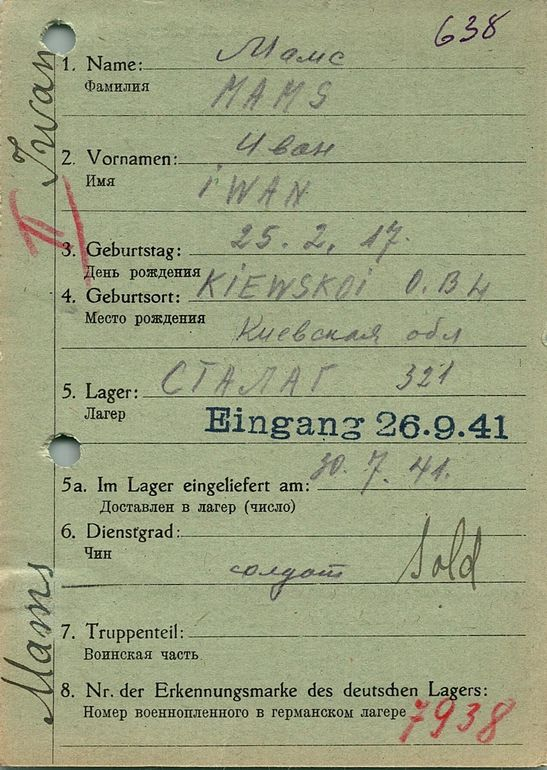 638
1. Name: Мамс
Фамилия MAMS
2. Vornamen: Иван
Имя iWAN
3. Geburtstag: 25. 2. 17.
День рождения
4. Geburtsort: KiEWSKOi O.BL
Место рождения Киевская обл
5. Lager: СТАЛАГ 321
Лагерь
Eingang 26.9.41
5a. Im Lager eingeliefert am: 30. 7. 41.
Доставлен в лагер (число)
6. Dienstgrad:
Чин солдат Sold
7. Truppenteil:
Воинская часть
8. Nr. der Erkennungsmarke des deutschen Lagers:
Номер военнопленного в германском лагере 7938
Mams Iwan
II